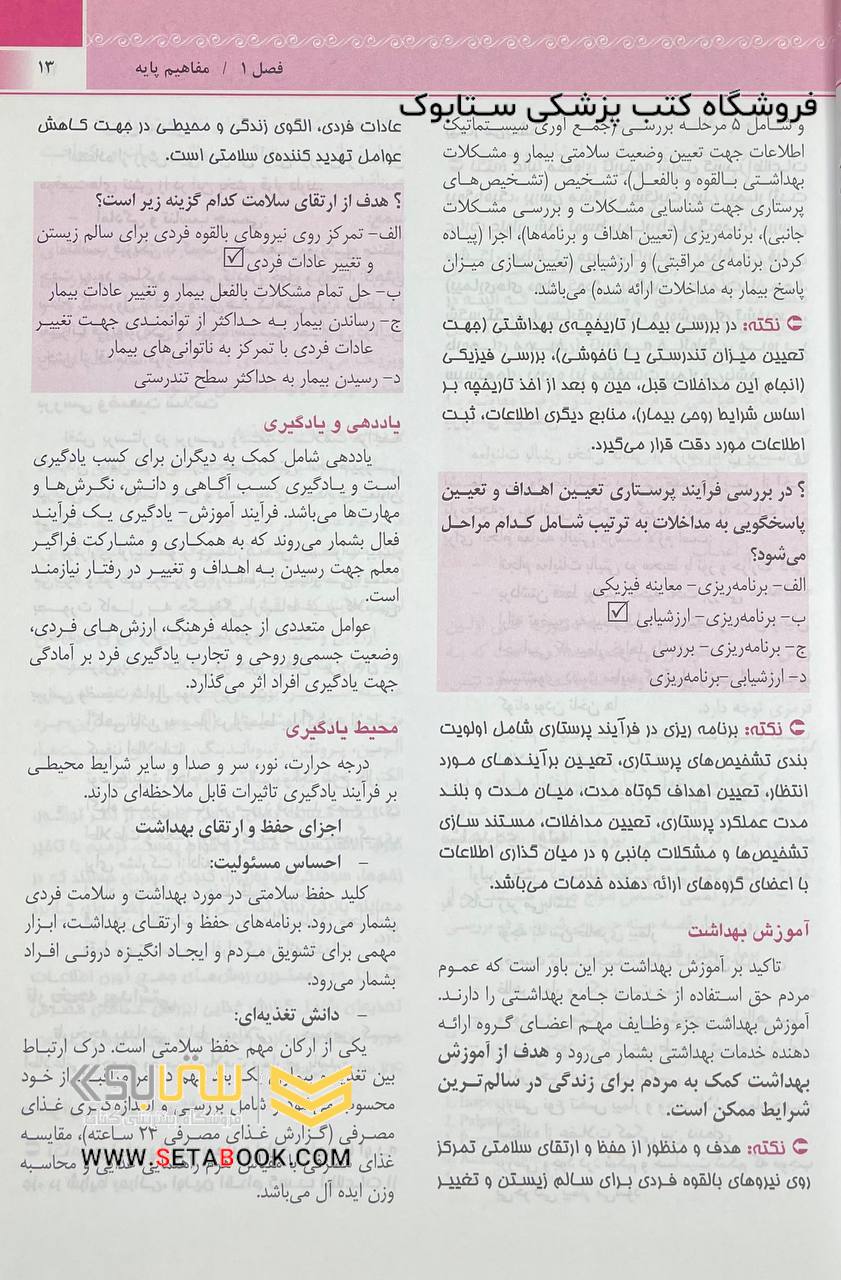 فصل ۱ / مفاهیم پایه
۱۳
فروشگاه کتب پزشکی ستابوک
و شامل ۵ مرحله بررسی (جمع آوری سیستماتیک
اطلاعات جهت تعیین وضعیت سلامتی بیمار و مشکلات
بهداشتی بالقوه و بالفعل)، تشخیص (تشخیص‌های
پرستاری جهت شناسایی مشکلات و بررسی مشکلات
جانبی)، برنامه‌ریزی (تعیین اهداف و برنامه‌ها)، اجرا (پیاده
کردن برنامه‌ی مراقبتی) و ارزشیابی (تعیین‌سازی میزان
پاسخ بیمار به مداخلات ارائه شده) می‌باشد.
نکته: در بررسی بیمار تاریخچه‌ی بهداشتی (جهت
تعیین میزان تندرستی یا ناخوشی)، بررسی فیزیکی
(انجام این مداخلات قبل، حین و بعد از اخذ تاریخچه بر
اساس شرایط روحی بیمار)، منابع دیگری اطلاعات، ثبت
اطلاعات مورد دقت قرار می‌گیرد.
؟ در بررسی فرآیند پرستاری تعیین اهداف و تعیین
پاسخگویی به مداخلات به ترتیب شامل کدام مراحل
می‌شود؟
الف- برنامه‌ریزی- معاینه فیزیکی
ب- برنامه‌ریزی- ارزشیابی ☑
ج- برنامه‌ریزی- بررسی
د- ارزشیابی-برنامه‌ریزی
نکته: برنامه ریزی در فرآیند پرستاری شامل اولویت
بندی تشخیص‌های پرستاری، تعیین برآیندهای مورد
انتظار، تعیین اهداف کوتاه مدت، میان مدت و بلند
مدت عملکرد پرستاری، تعیین مداخلات، مستند سازی
تشخیص‌ها و مشکلات جانبی و در میان گذاری اطلاعات
با اعضای گروه‌های ارائه دهنده خدمات می‌باشد.
آموزش بهداشت
تاکید بر آموزش بهداشت بر این باور است که عموم
مردم حق استفاده از خدمات جامع بهداشتی را دارند.
آموزش بهداشت جزء وظایف مهم اعضای گروه ارائه
دهنده خدمات بهداشتی بشمار می‌رود و هدف از آموزش
بهداشت کمک به مردم برای زندگی در سالم‌ترین
شرایط ممکن است.
نکته: هدف و منظور از حفظ و ارتقای سلامتی تمرکز
روی نیروهای بالقوه فردی برای سالم زیستن و تغییر
عادات فردی، الگوی زندگی و محیطی در جهت کاهش
عوامل تهدید کننده‌ی سلامتی است.
؟ هدف از ارتقای سلامت کدام گزینه زیر است؟
الف- تمرکز روی نیروهای بالقوه فردی برای سالم زیستن
و تغییر عادات فردی ☑
ب- حل تمام مشکلات بالفعل بیمار و تغییر عادات بیمار
ج- رساندن بیمار به حداکثر از توانمندی جهت تغییر
عادات فردی با تمرکز به ناتوانی‌های بیمار
د- رسیدن بیمار به حداکثر سطح تندرستی
یاددهی و یادگیری
یاددهی شامل کمک به دیگران برای کسب یادگیری
است و یادگیری کسب آگاهی و دانش، نگرش‌ها و
مهارت‌ها می‌باشد. فرآیند آموزش- یادگیری یک فرآیند
فعال بشمار می‌روند که به همکاری و مشارکت فراگیر
معلم جهت رسیدن به اهداف و تغییر در رفتار نیازمند
است.
عوامل متعددی از جمله فرهنگ، ارزش‌های فردی،
وضعیت جسمی‌و روحی و تجارب یادگیری فرد بر آمادگی
جهت یادگیری افراد اثر می‌گذارد.
محیط یادگیری
درجه حرارت، نور، سر و صدا و سایر شرایط محیطی
بر فرآیند یادگیری تاثیرات قابل ملاحظه‌ای دارند.
اجزای حفظ و ارتقای بهداشت
- احساس مسئولیت:
کلید حفظ سلامتی در مورد بهداشت و سلامت فردی
بشمار می‌رود. برنامه‌های حفظ و ارتقای بهداشت، ابزار
مهمی برای تشویق مردم و ایجاد انگیزه درونی افراد
بشمار می‌رود.
- دانش تغذیه‌ای:
یکی از ارکان مهم حفظ سلامتی است. درک ارتباط
بین تغذیه و بیماری یک بعد مهم در امر مراقبت از خود
محسوب می‌شود و شامل بررسی و اندازه‌گیری غذای
مصرفی (گزارش غذای مصرفی ۲۴ ساعته)، مقایسه
غذای مصرفی با مقیاس هرم راهنمای غذایی و محاسبه
وزن ایده آل می‌باشد.
ستابوک
فروشگاه اینترنتی کتاب
WWW.SETABOOK.COM